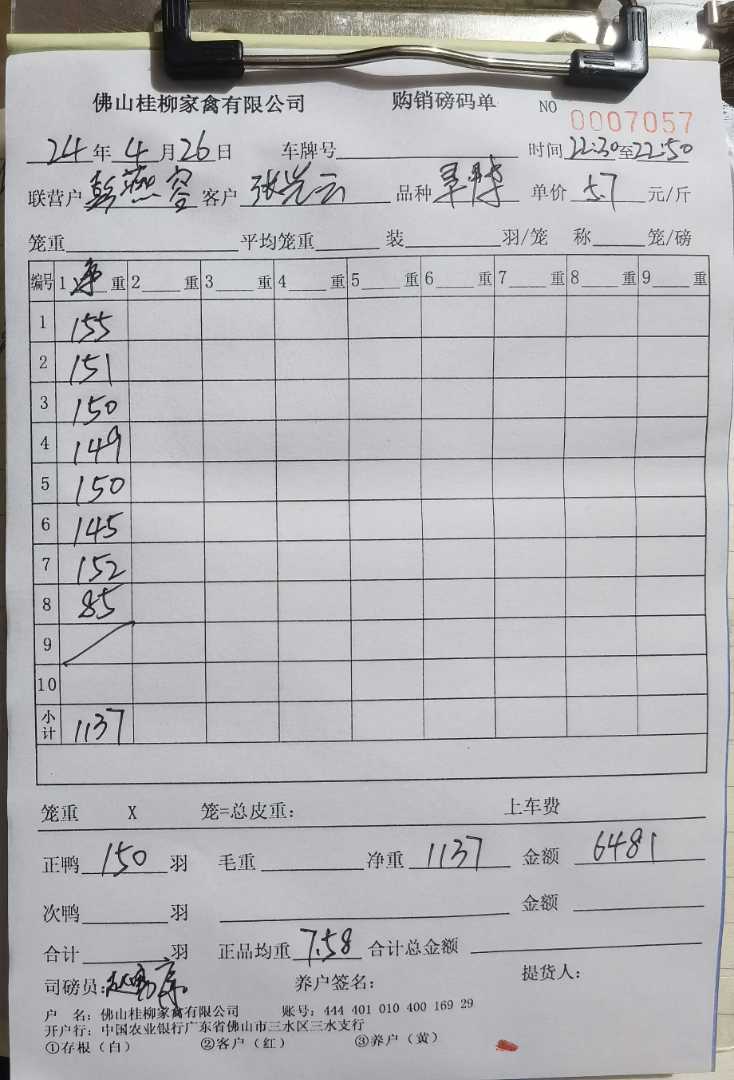 佛山桂柳家禽有限公司 购销磅码单 NO 0007057
24年4月26日 车牌号 时间22:30至22:50
联营户 彭燕容 客户 张光云 品种 单价 5.7 元/斤
笼重 平均笼重 装 羽/笼 称 笼/磅
编号 1净重 2 重 3 重 4 重 5 重 6 重 7 重 8 重 9 重
1 155
2 151
3 150
4 149
5 150
6 145
7 152
8 85
9
10
小计 1137
笼重 X 笼=总皮重: 上车费
正鸭 150 羽 毛重 净重 1137 金额 6481
次鸭 羽 金额
合计 羽 正品均重 7.58 合计总金额
司磅员: 养户签名: 提货人:
户 名: 佛山桂柳家禽有限公司 账号: 444 401 010 400 169 29
开户行: 中国农业银行广东省佛山市三水区三水支行
①存根(白) ②客户(红) ③养户(黄)